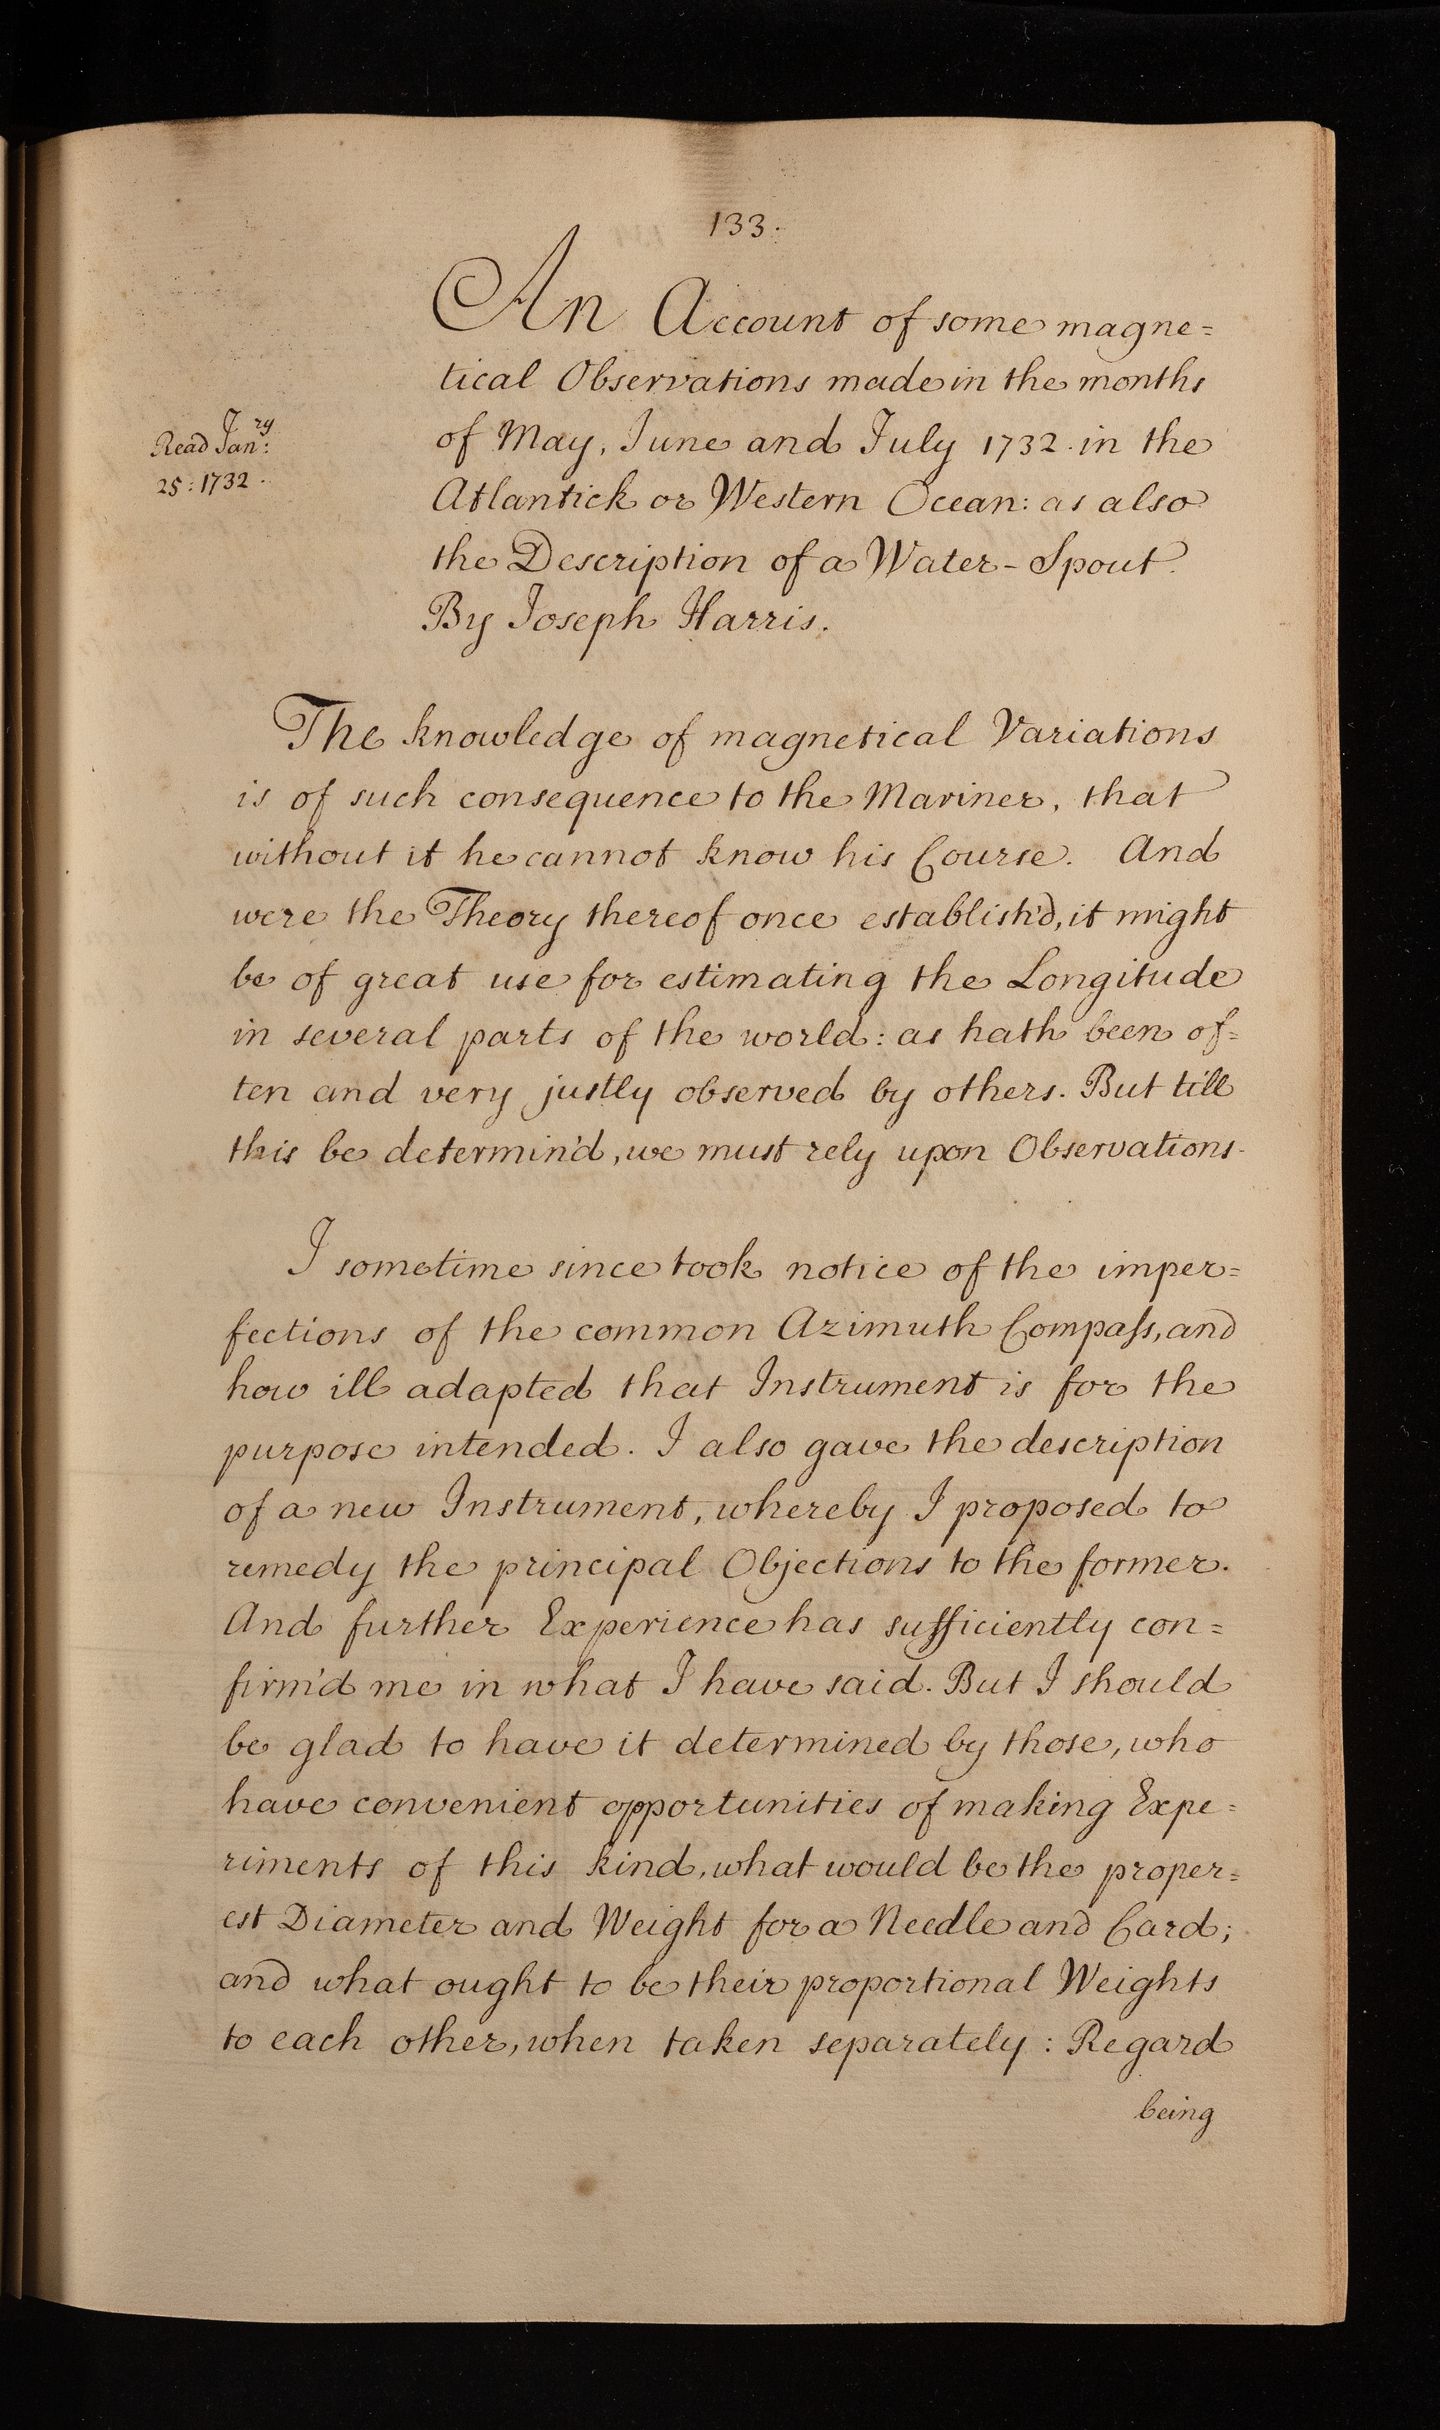 133.
An Account of some magne=
tical Observations made in the months
of May, June and July 1732. in the
Read Jan.ry
25: 1732.
Atlantick or Western Ocean: as also
the Description of a Water-Spout.
By Joseph Harris.
The knowledge of magnetical Variations
is of such consequence to the Mariner, that
without it he cannot know his Course. And
were the Theory thereof once establish'd, it might
be of great use for estimating the Longitude
in several parts of the world: as hath been of=
ten and very justly observed by others. But till
this be determin'd, we must rely upon Observations.
I sometime since took notice of the imper=
fections of the common Azimuth Compaſs, and
how ill adapted that Instrument is for the
purpose intended. I also gave the description
of a new Instrument, whereby I proposed to
remedy the principal Objections to the former.
And further Experience has sufficiently con=
firm'd me in what I have said. But I should
be glad to have it determined by those, who
have convenient opportunities of making Expe=
riments of this kind, what would be the proper=
est Diameter and Weight for a Needle and Card;
and what ought to be their proportional Weights
to each other, when taken separately: Regard
being